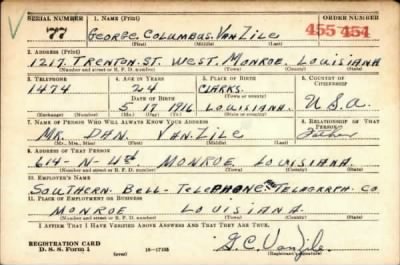 SERIAL NUMBER 1. NAME (Print) ORDER NUMBER
77 GEORGE COLUMBUS VANZILE 455 454
(First) (Middle) (Last)
2. ADDRESS (Print)
1217 TRENTON. ST. WEST. MONROE. LOUISIANA
(Number and street or R. F. D. number) (Town) (County) (State)
3. TELEPHONE 4. AGE IN YEARS 5. PLACE OF BIRTH 6. COUNTRY OF CITIZENSHIP
1474 24 CLARKS.
DATE OF BIRTH (Town or county)
5 17 1916 LOUISIANA. U.S.A
(Exchange) (Number) (Mo.) (Day) (Yr.) (State or country)
7. NAME OF PERSON WHO WILL ALWAYS KNOW YOUR ADDRESS 8. RELATIONSHIP OF THAT PERSON
MR. DAN. VANZILE Father
(Mr., Mrs., Miss) (First) (Middle) (Last)
9. ADDRESS OF THAT PERSON
614-N-4th MONROE LOUISIANA.
(Number and street or R. F. D. number) (Town) (County) (State)
10. EMPLOYER'S NAME
SOUTHERN BELL-TELEPHONE TELEGRAPH. CO
11. PLACE OF EMPLOYMENT OR BUSINESS
MONROE LOUISIANA.
(Number and street or R. F. D. number) (Town) (County) (State)
I AFFIRM THAT I HAVE VERIFIED ABOVE ANSWERS AND THAT THEY ARE TRUE.
REGISTRATION CARD
D. S. S. Form 1 (over) 16-17105 G.C. VanZile
(Registrant's signature)